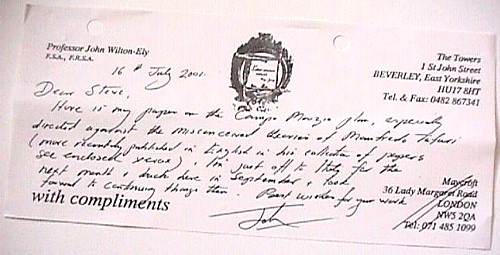 Professor John Wilton-Ely
F.S.A., F.R.S.A.
The Towers
1 St John Street
BEVERLEY, East Yorkshire
HU17 8HT
Tel. & Fax: 0482 867341
16th July 2001.
Dear Steve,
Here is my paper on the Campo Marzio plan, especially
directed against the misconceived theories of Manfredo Tafuri
(more recently published in English in his collection of papers
see enclosed xerox). I'm just off to Italy for the
next month & back here in September & look
forward to continuing things then. Best wishes for your work
John
with compliments
Maycroft
36 Lady Margaret Road
LONDON
NW5 2QA
Tel: 071 485 1099